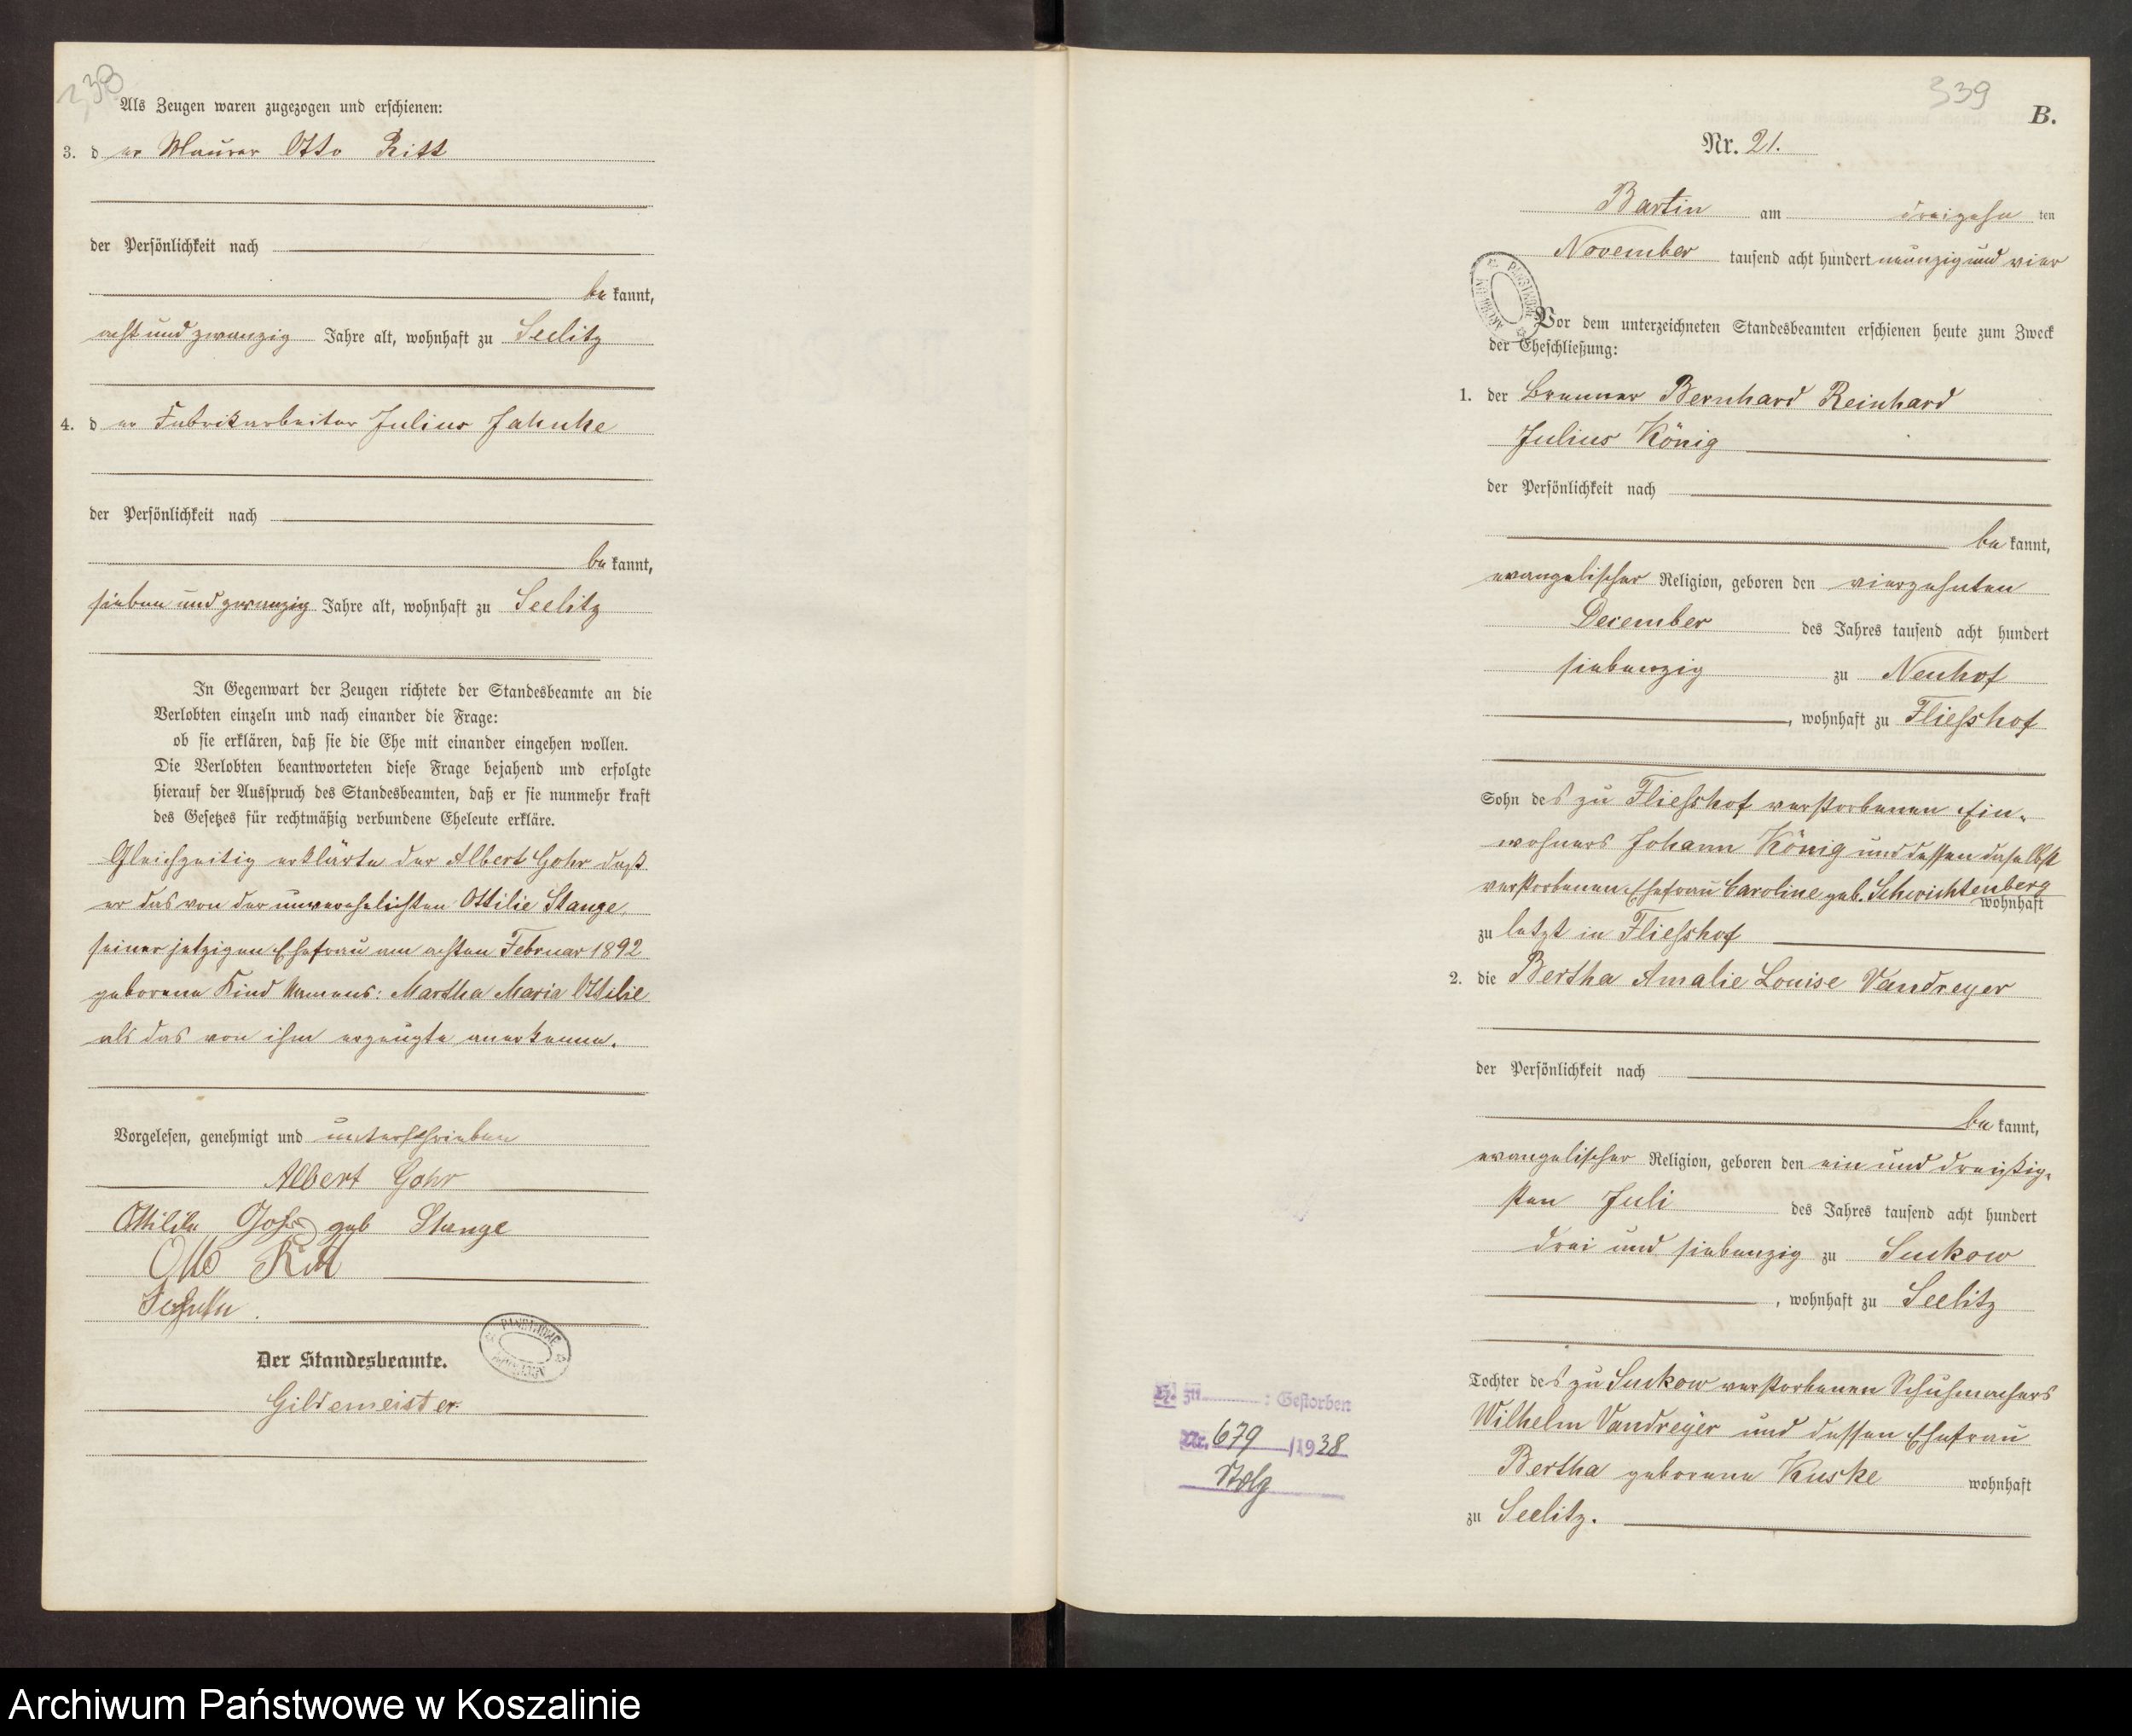 338
Als Zeugen waren zugezogen und erschienen:
3. d er Maurer Otto Ritt
der Persönlichkeit nach
be kannt,
acht und zwanzig Jahre alt, wohnhaft zu Seelitz
4. d er Fabrikarbeiter Julius Jahnke
der Persönlichkeit nach
be kannt,
sieben und zwanzig Jahre alt, wohnhaft zu Seelitz
In Gegenwart der Zeugen richtete der Standesbeamte an die
Verlobten einzeln und nach einander die Frage:
ob sie erklären, daß sie die Ehe mit einander eingehen wollen.
Die Verlobten beantworteten diese Frage bejahend und erfolgte
hierauf der Ausspruch des Standesbeamten, daß er sie nunmehr kraft
des Gesetzes für rechtmäßig verbundene Eheleute erkläre.
Gleichzeitig erklärte der Albert Gohr daß
er das von der unverehelichten Ottilie Stange,
seiner jetzigen Ehefrau am achten Februar 1892
geborene Kind Namens: Martha Maria Ottilie
als das von ihm erzeugte anerkenne.
Vorgelesen, genehmigt und unterschrieben
Albert Gohr
Ottilie Gohr geb Stange
Otto Ritt
Der Standesbeamte.
Gildemeister.
339
B.
Nr. 21.
Bartin am dreizehn ten
November tausend acht hundert neunzig und vier
Vor dem unterzeichneten Standesbeamten erschienen heute zum Zweck
der Eheschließung:
1. der Brenner Bernhard Reinhard
Julius König
der Persönlichkeit nach
be kannt,
evangelischer Religion, geboren den vierzehnten
December des Jahres tausend acht hundert
siebenzig zu Neuhof
, wohnhaft zu Fliesshof
Sohn des zu Fliesshof verstorbenen Ein-
wohners Johann König und dessen daselbst
verstorbenen Ehefrau Caroline geb. Schwichtenberg
wohnhaft
zu letzt in Fliesshof
2. die Bertha Amalie Louise Vandreyer
der Persönlichkeit nach
be kannt,
evangelischer Religion, geboren den ein und dreißig-
sten Juli des Jahres tausend acht hundert
drei und siebenzig zu Suckow
, wohnhaft zu Seelitz
Tochter des zu Suckow verstorbenen Schuhmachers
Wilhelm Vandreyer und dessen Ehefrau
Bertha geborene Kuske wohnhaft
zu Seelitz.
H. zu : Gestorben
Nr. 679 /1938
Stolp
Archiwum Państwowe w Koszalinie